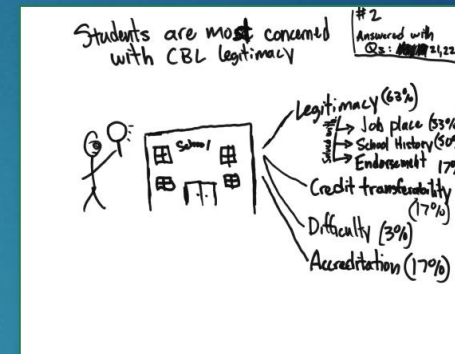 Students are most concerned
with CBL Legitimacy
#2
Answered with
Qs: 21,22
School
Legitimacy (63%)
→ Job place (33%)
→ School History (50%)
→ Endorsement 17%
Credit transferability
(17%)
Difficulty (3%)
Accreditation (17%)